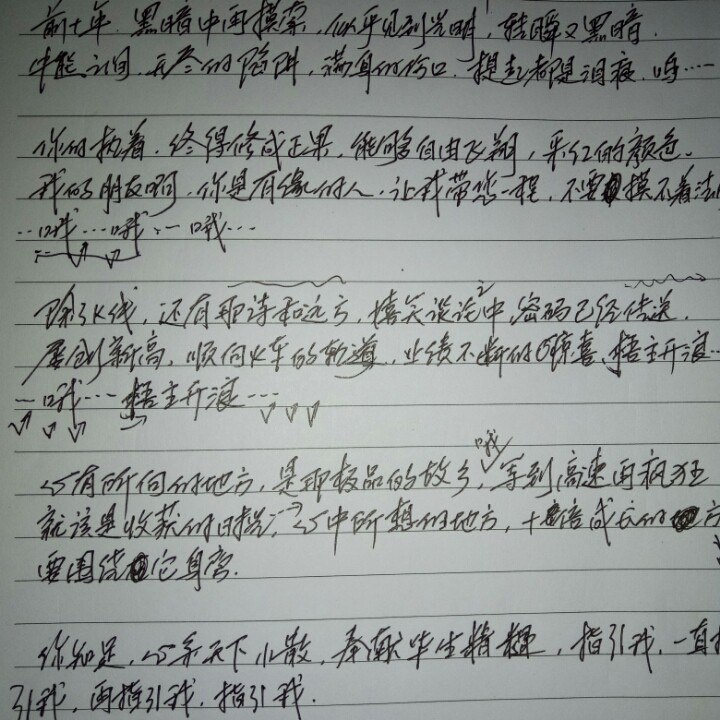 前十年,黑暗中再摸索,似乎见到光明,转瞬又黑暗.
之间.无尽的陷阱,满身的伤口.提起都是泪痕.呜……
你的执着.终得修成正果.能够自由飞翔,彩红的颜色。
我的朋友啊,你是有缘的人.让我带您一程,不要摸不着法
…哦…哦…哦…
除了K线,还有那诗和远方,嬉笑谈论中,密码已经传送.
屡创新高,顺向火车的轨道,业绩不断的惊喜,主升浪…
…哦…主升浪…
心有所向的地方,是那极品的故乡,哦 等到高速再疯狂
就该是收获的时光,心中所想的地方,十倍成长的方
要围绕它身旁.
你知足,心系天下小散,奉献毕生精粹,指引我,一直指
引我,再指引我,指引我.